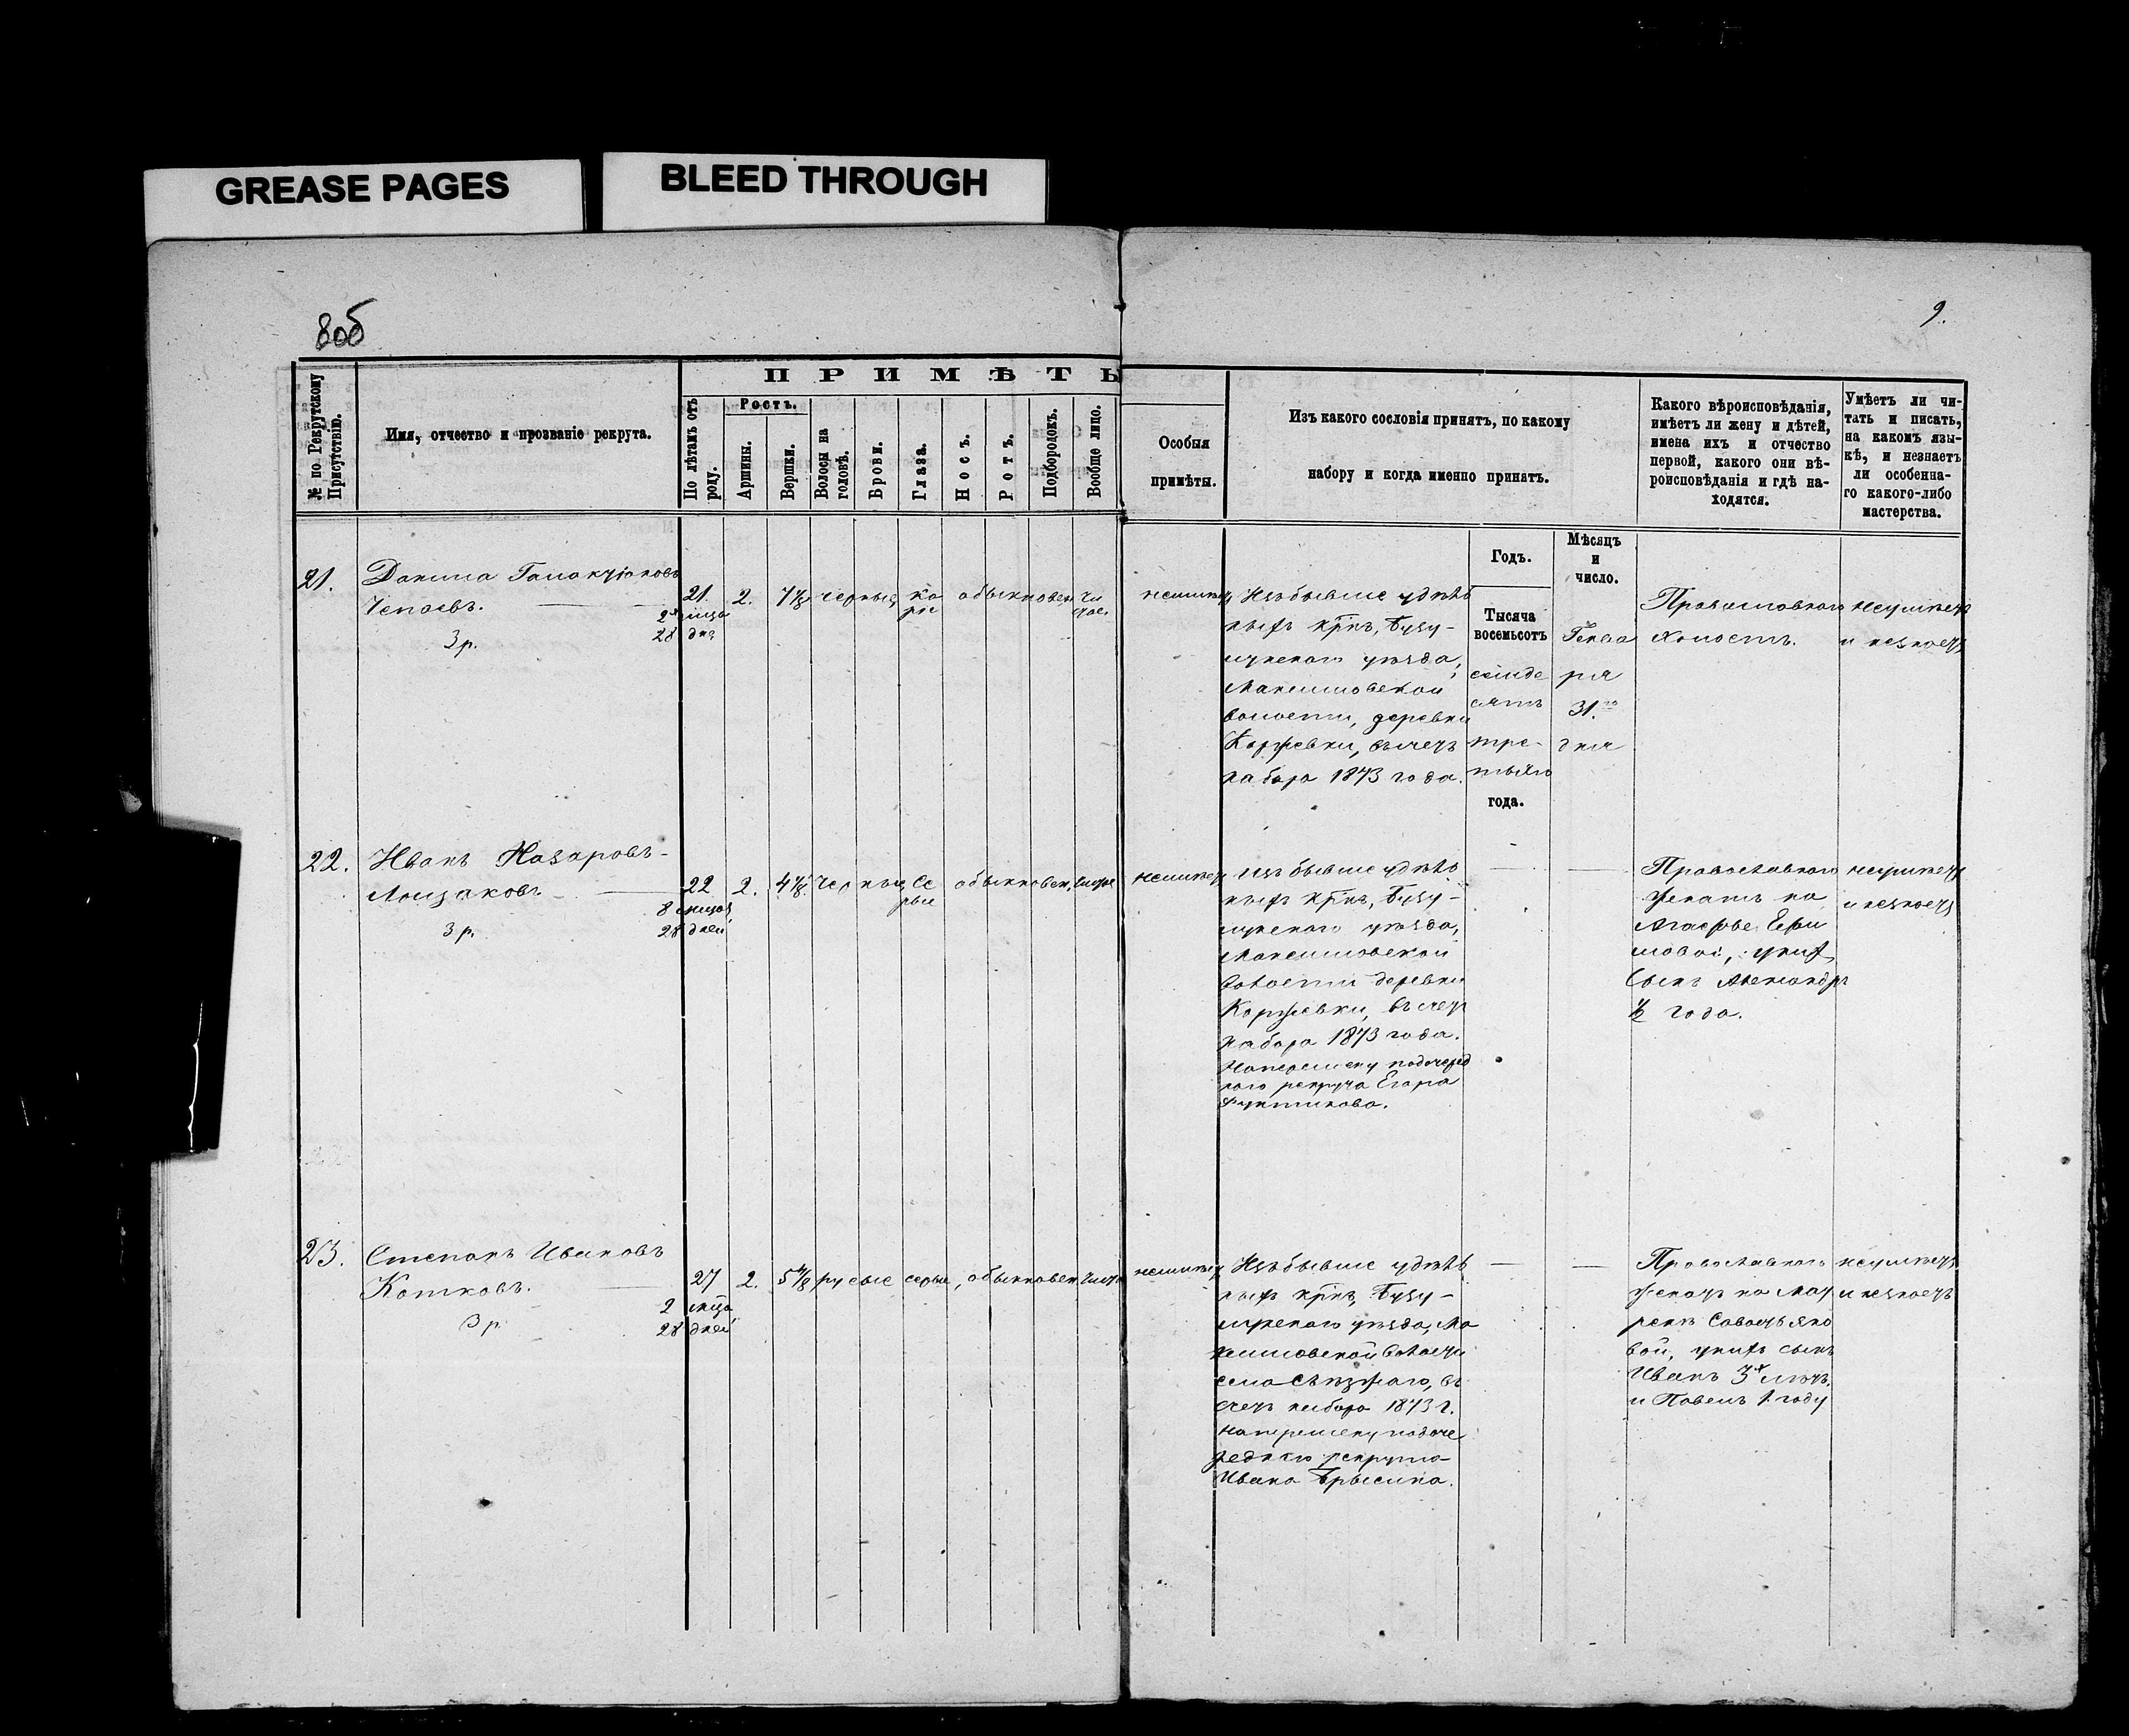 GREASE PAGES
BLEED THROUGH
8об
9.
№ по Рекрутскому Присутствію.
Имя, отчество и прозваніе рекрута.
ПРИМѢТЫ
По лѣтамъ отъ роду.
Ростъ.
Аршины.
Вершки.
Волосы на головѣ.
Брови.
Глаза.
Носъ.
Ротъ.
Подбородокъ.
Вообще лицо.
Особыя
примѣты.
Изъ какого сословія принятъ, по какому
набору и когда именно принятъ.
Какого вѣроисповѣданія,
имѣетъ ли жену и дѣтей,
имена ихъ и отчество
первой, какого они вѣ-
роисповѣданія и гдѣ на-
ходятся.
Умѣетъ ли чи-
тать и писать,
на какомъ язы-
кѣ, и незнаетъ
ли особенна-
го какого-либо
мастерства.
Годъ.
Мѣсяцъ
и
число.
21.
Данила
3 р.
21
28 дня
2.
7 1/8
черные
ка
ріе
обыкновен
чи
стое
неимѣетъ
Изъ бывше удѣль
ныхъ крнъ, Бузу-
лукскаго уѣзда,
Максимовской
волости, деревни
Коржевки, въ счетъ
набора 1873 года.
Тысяча
восемьсотъ
семьде
сятъ
тре-
тьяго
года.
Генва
ря
31.го
дня
Православнаго
холостъ.
неумѣетъ
и незнаетъ
22.
Иванъ Назаровъ
3 р.
22
8 мцов
28 дней
2.
черные
Се
рые
обыкновен.
чистое
неимѣетъ
Изъ бывше удѣль
ныхъ крнъ, Бузу-
лукскаго уѣзда,
Максимовской
волости деревни
Коржевки, въ счетъ
набора 1873 года.
Наперемену подочеред
наго рекрута Егора
Православнаго
женатъ на
Агафье Ефи
мовой, у нихъ
сынъ Александръ
1/2 года.
неумѣетъ
и незнаетъ
23.
Степанъ Ивановъ
Котковъ.
3 р
27
2 мца
28 дней
2.
русые
серые,
обыкновен
чистое
неимѣетъ
Изъ бывше удѣль
ныхъ крнъ, Бузу-
лукскаго уѣзда, Ма
ксимовской волости
села Съѣзжаго, въ
счетъ набора 1873 г.
наперемену подоче
реднаго рекрута
Ивана Брысина.
Православнаго
женатъ на Мат
рене
вой, у нихъ сынъ
Иванъ 3х лѣтъ.
и Павелъ 1 году
неумѣетъ
и незнаетъ